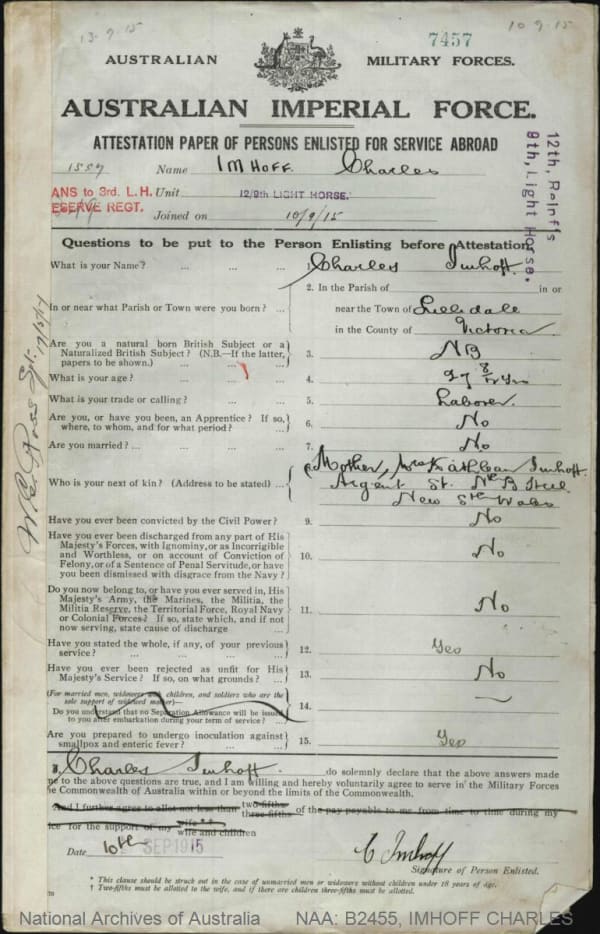 13.9.15
10.9.15
7457
AUSTRALIAN MILITARY FORCES.
AUSTRALIAN IMPERIAL FORCE.
ATTESTATION PAPER OF PERSONS ENLISTED FOR SERVICE ABROAD
12th, Reinf's
9th, Light Horse.
1559 Name IMHOFF. Charles
ANS to 3rd. L.H. Unit 12/9th LIGHT HORSE.
ESERVE REGT. Joined on 10/9/15
Questions to be put to the Person Enlisting before Attestation.
What is your Name? ... ... ... 1. Charles Imhoff.
In or near what Parish or Town were you born? ... 2. In the Parish of in or
near the Town of Lillidale
in the County of Victoria
Are you a natural born British Subject or a
Naturalized British Subject? (N.B.—If the latter,
papers to be shown.) ... ... ... 3. NB
What is your age? ... ... ... 4. 27 8/12 yrs
What is your trade or calling? ... ... 5. Laborer.
Are you, or have you been, an Apprentice? If so,
where, to whom, and for what period? ... 6. No
Are you married? ... ... ... 7. No
Who is your next of kin? (Address to be stated) ... Mother, Mrs Kathleen Imhoff.
Argent St. Nth B Hill
New Sth Wales
Have you ever been convicted by the Civil Power? 9. No
Have you ever been discharged from any part of His
Majesty's Forces, with Ignominy, or as Incorrigible
and Worthless, or on account of Conviction of
Felony, or of a Sentence of Penal Servitude, or have
you been dismissed with disgrace from the Navy? 10. No
Do you now belong to, or have you ever served in, His
Majesty's Army, the Marines, the Militia, the
Militia Reserve, the Territorial Force, Royal Navy
or Colonial Forces? If so, state which, and if not
now serving, state cause of discharge ... 11. No
Have you stated the whole, if any, of your previous
service? ... ... ... 12. Yes
Have you ever been rejected as unfit for His
Majesty's Service? If so, on what grounds? ... 13. No
(For married men, widowers with children, and soldiers who are the
sole support of widowed mother)—
Do you understand that no Separation Allowance will be issued
to you after embarkation during your term of service? ... 14.
Are you prepared to undergo inoculation against
smallpox and enteric fever? ... ... 15. Yes
I, Charles Imhoff. do solemnly declare that the above answers made
me to the above questions are true, and I am willing and hereby voluntarily agree to serve in the Military Forces
he Commonwealth of Australia within or beyond the limits of the Commonwealth.
And I further agree to allot not less than two-fifths three-fifths of the pay payable to me from time to time during my
ice for the support of my wife** wife and children
Date 10th SEP 1915
C Imhoff
Signature of Person Enlisted.
* This clause should be struck out in the case of unmarried men or widowers without children under 18 years of age.
† Two-fifths must be allotted to the wife, and if there are children three-fifths must be allotted.
National Archives of Australia NAA: B2455, IMHOFF CHARLES